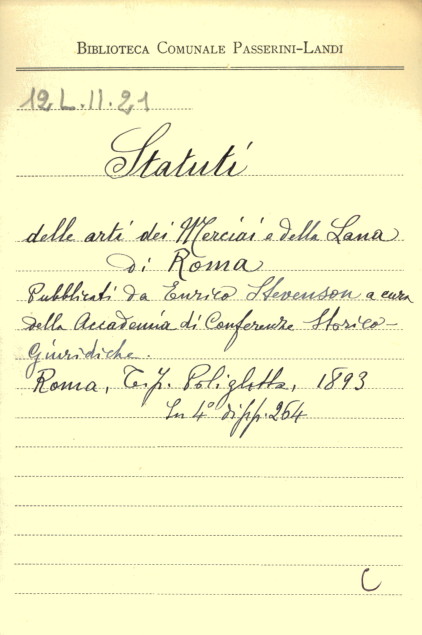 BIBLIOTECA COMUNALE PASSERINI-LANDI
12 L. II. 21
Statuti
delle arti dei Merciai e della Lana
di Roma
Pubblicati da Enrico Stevenson a cura
della Accademia di Conferenze Storico-
Giuridiche.
Roma, Tip. Poliglotta, 1893
In 4° di pp. 264
C